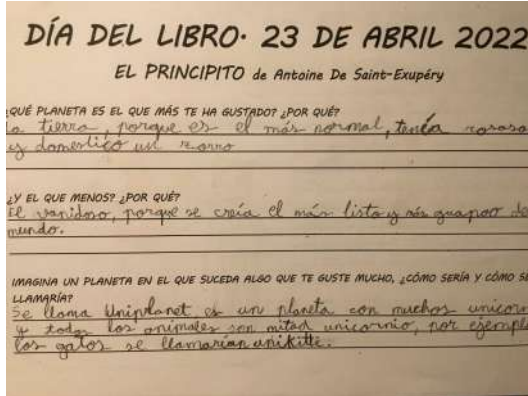 DÍA DEL LIBRO· 23 DE ABRIL 2022
EL PRINCIPITO de Antoine De Saint-Exupéry
¿QUÉ PLANETA ES EL QUE MÁS TE HA GUSTADO? ¿POR QUÉ?
la tierra, porque es el más normal, tenía rosas
y domestico un
¿Y EL QUE MENOS? ¿POR QUÉ?
El vanidoso, porque se creía el más listo y más guapoo
mundo.
IMAGINA UN PLANETA EN EL QUE SUCEDA ALGO QUE TE GUSTE MUCHO, ¿CÓMO SERÍA Y CÓMO SE
LLAMARÍA?
Se llama Uniplanet es un planeta con muchos
y todos los animales son mitad unicornio, por
los gatos se llamarían unikitti.